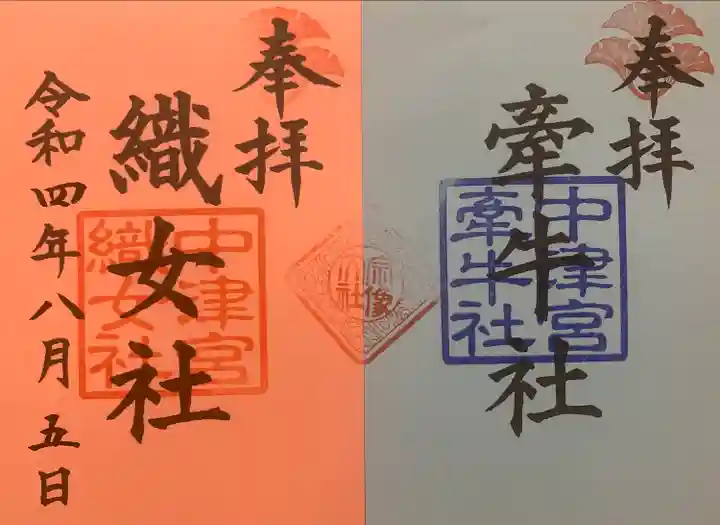 奉拝
牽牛社
中津宮
牽牛社
奉拝
織女社
中津宮
織女社
令和四年八月五日
宗像